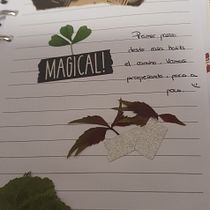 MAGICAL!
Primer paso
desde esta bonita
el camino. Vamos
progresando, poco a
poco.